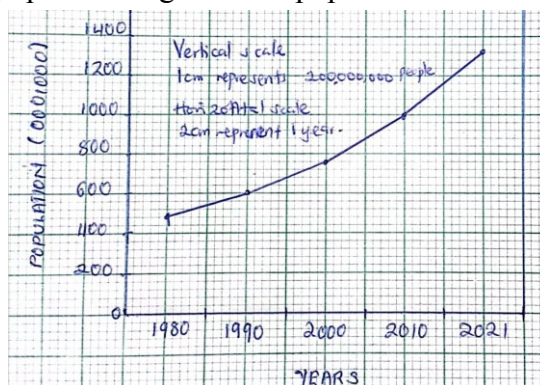 1400
1200
1000
800
600
400
200
0
POPULATION (0001000)
Vertical scale
1cm represents 200,000,000 people
Horizontal scale
2cm represent 1 year.
1980 1990 2000 2010 2021
YEARS